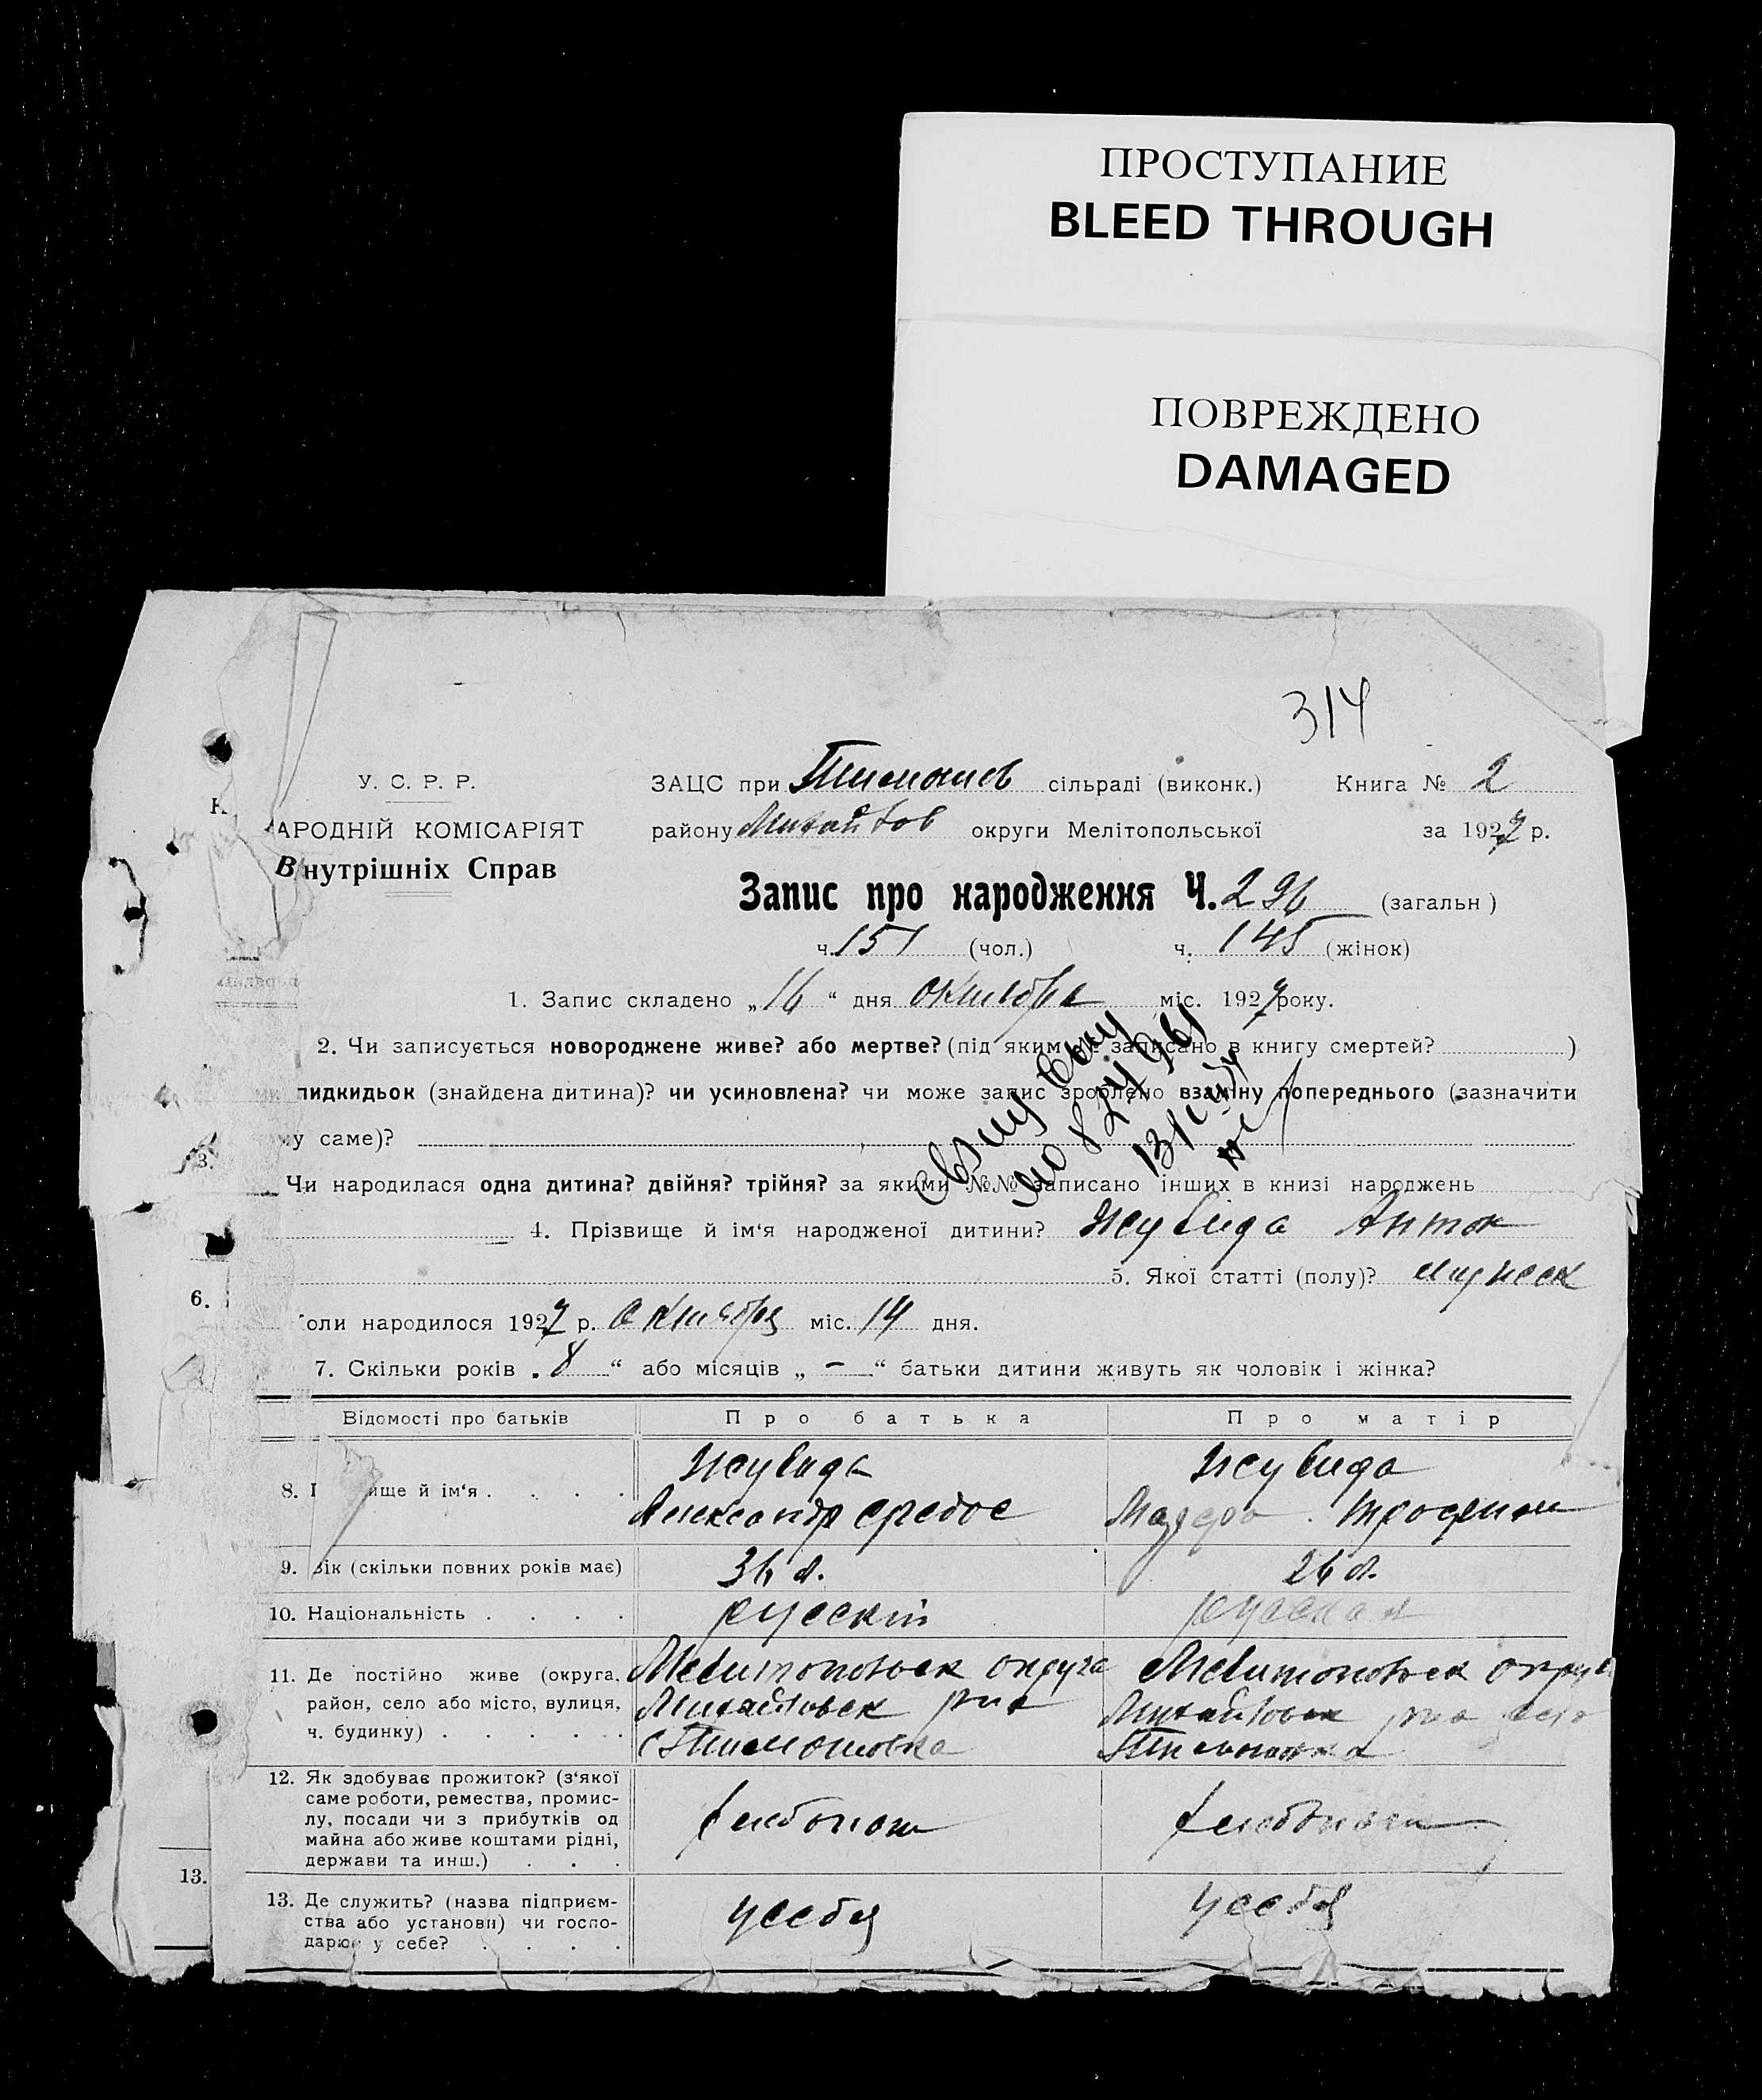 ПРОСТУПАНИЕ
BLEED THROUGH
ПОВРЕЖДЕНО
DAMAGED
314
У. С. Р. Р.
АРОДНІЙ КОМІСАРІЯТ
Внутрішніх Справ
ЗАЦС при Тимошов сільраді (виконк.) Книга № 2
району Михайлов округи Мелітопольської за 1927 р.
Запис про народження Ч. 296 (загальн)
ч. 151 (чол.) ч. 145 (жінок)
1. Запис складено „16“ дня октября міс. 1927 року.
2. Чи записується новороджене живе? або мертве? (під яким № записано в книгу смертей? )
пидкидьок (знайдена дитина)? чи усиновлена? чи може запис зроблено взаміну попереднього (зазначити
у саме)?
3.
Чи народилася одна дитина? двійня? трійня? за якими №№ записано інших в книзі народжень
4. Прізвище й ім‘я народженої дитини? Жувида Антон
5. Якої статті (полу)? мужеск
6.
оли народилося 1927 р. октября міс. 14 дня.
7. Скільки років „8“ або місяців „–“ батьки дитини живуть як чоловік і жінка?
Відомості про батьків Про батька Про матір
8. ище й ім‘я . . . . Жувида Жувида
Александр
9. Вік (скільки повних років має) 36 л. 26 л.
10. Національність . . . . русский русская
11. Де постійно живе (округа, район, село або місто, вулиця, ч. будинку) . . . . .
Мелитопольск округа
Михайловск рна
с Тимошовка
Мелитопольск округа
Михайловск рна село
Тимошовка
12. Як здобуває прожиток? (з‘якої
саме роботи, ремества, промис-
лу, посади чи з прибутків од
майна або живе коштами рідні,
держави та инш.) . . .
хлебопаш хлебопаш
13.
13. Де служить? (назва підприєм-
ства або установи) чи госпо-
дарює у себе? . . . .
у себя у себя